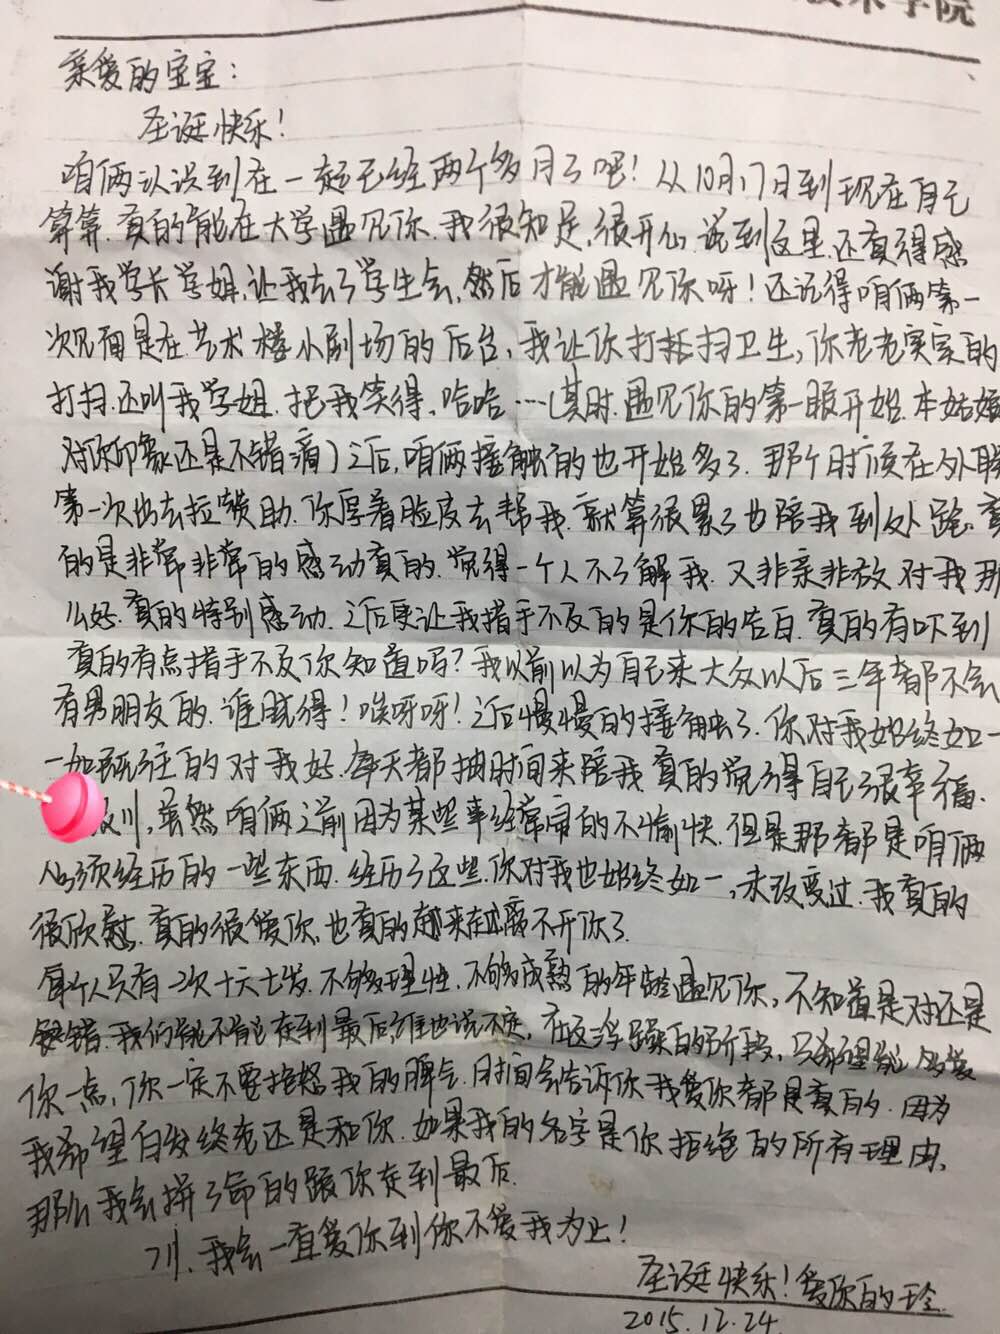 术学院
亲爱的宝宝：
圣诞快乐！
咱俩认识到在一起已经两个多月了吧！从10月17日到现在自己
算算.真的能在大学遇见你.我很知足,很开心.说到这里,还真得感
谢我学长学姐,让我去了学生会,然后才能遇见你呀！还记得咱俩第一
次见面是在艺术楼小剧场的后台,我让你打扫卫生,你老老实实的
打扫.还叫我学姐.把我笑得.哈哈…(其时.遇见你的第一眼开始.本姑娘
对你印象还是不错滴)之后,咱俩接触的也开始多了.那个时候在外联
第一次出去拉赞助.你厚着脸皮去帮我.就算很累了也陪我到处跑.真
的是非常非常的感动真的.觉得一个人不了解我.又非亲非故对我那
么好.真的特别感动.之后更让我措手不及的是你的告白.真的有吓到
真的有点措手不及你知道吗?我以前以为自己来大众以后三年都不会
有男朋友的.谁晓得！唉呀呀！之后慢慢的接触了.你对我始终如一
一如既往的对我好.每天都抽时间来陪我.真的觉得自己很幸福.
川,虽然咱俩之前因为某些事经常闹的不愉快.但是那都是咱俩
必须经历的一些东西.经历了这些.你对我也始终如一,未改变过.我真的
很欣慰.真的很爱你,也真的越来越离不开你了.
每个人只有一次十六七岁.不够理性.不够成熟的年龄遇见你,不知道是对还是
错.我们能不能走到最后谁也说不定,在这浮躁的阶段,只希望能多爱
你一点,你一定不要抱怨我的脾气.时间会告诉你我爱你都是真的.因为
我希望白发终老还是和你.如果我的名字是你拒绝的所有理由,
那么我会拼了命的跟你走到最后.
川.我会一直爱你到你不爱我为止！
圣诞快乐！爱你的玲
2015.12.24.